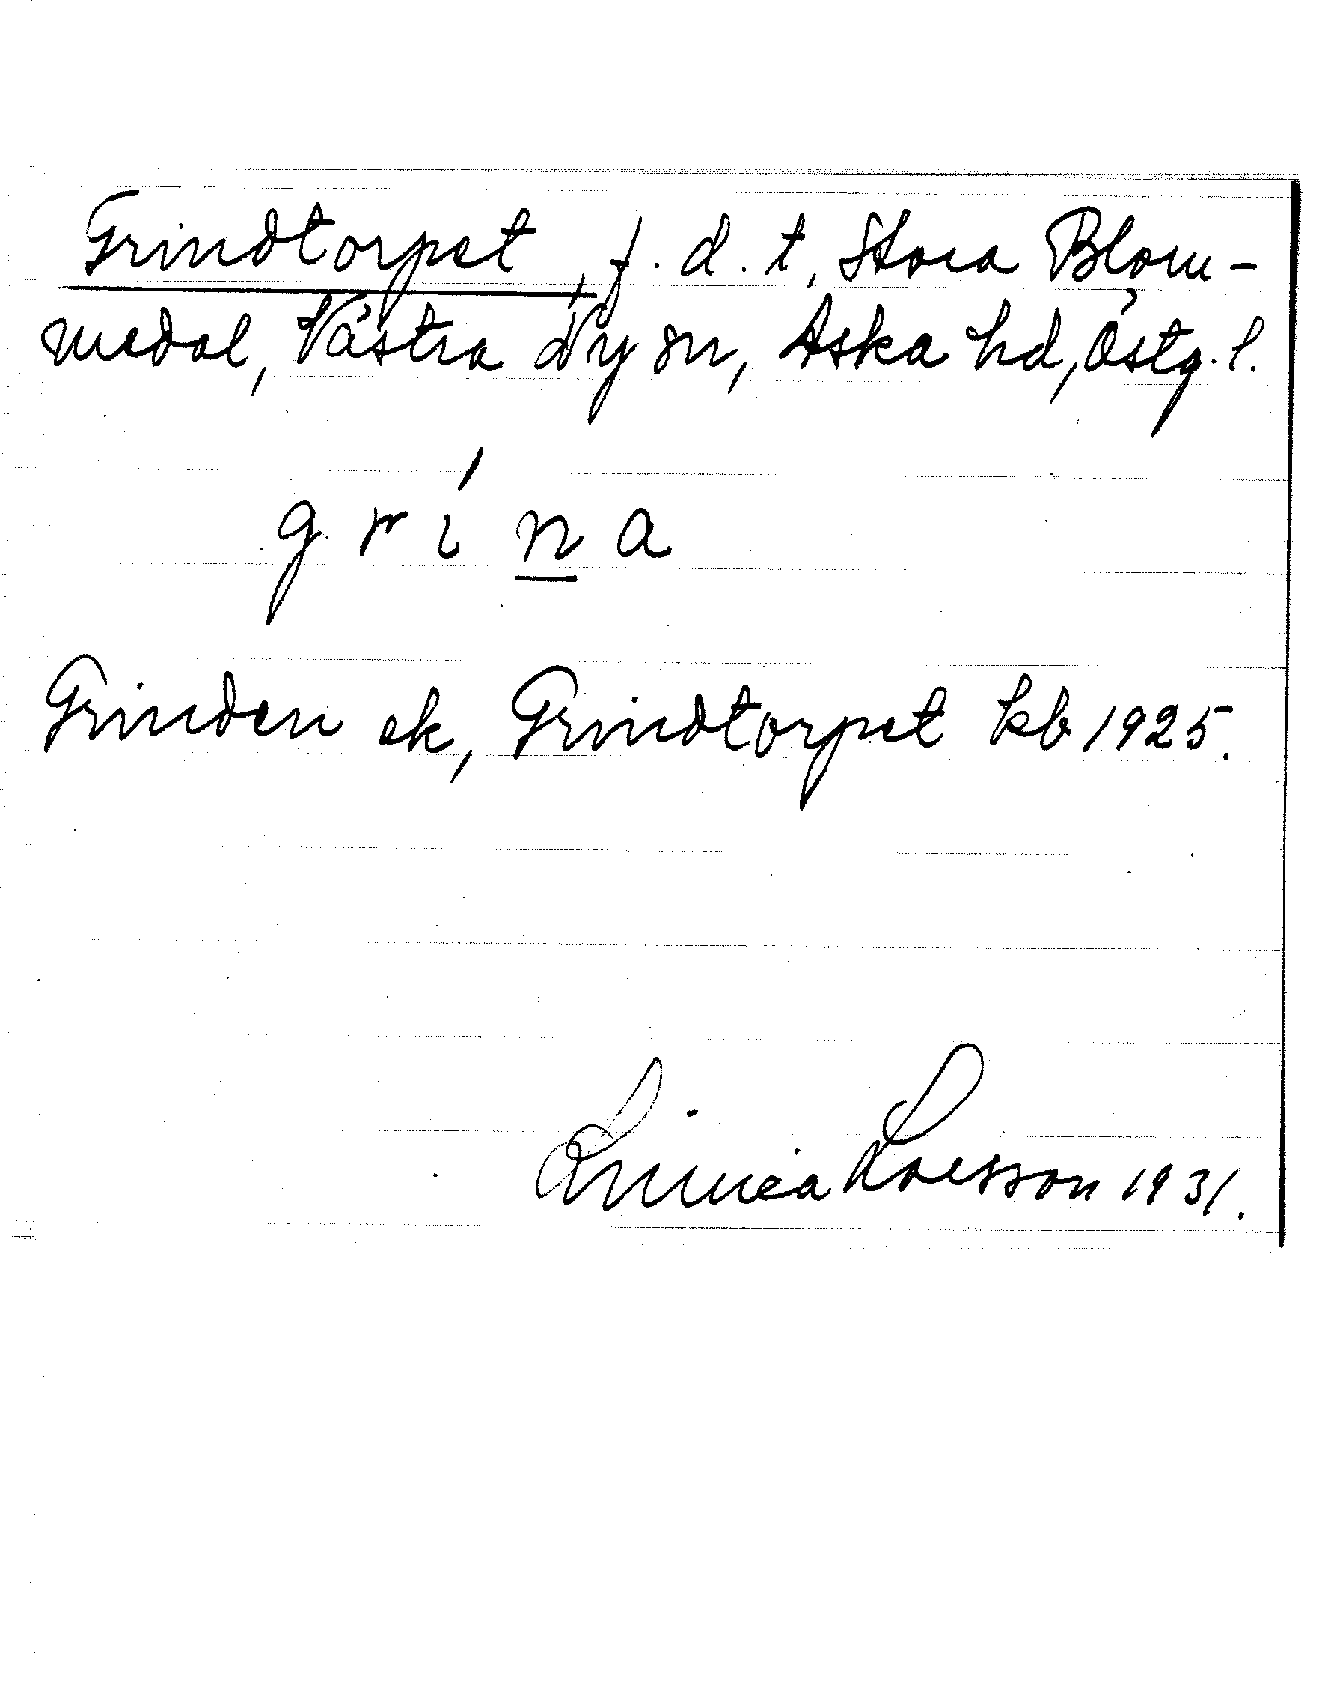 Grindtorpet, f. d. t, Stora Blom-
medal, Västra Ny sn, Aska hd, Östg. l.
grina
Grinden ek, Grindtorpet kb 1925.
Linnéa Larsson 1931.